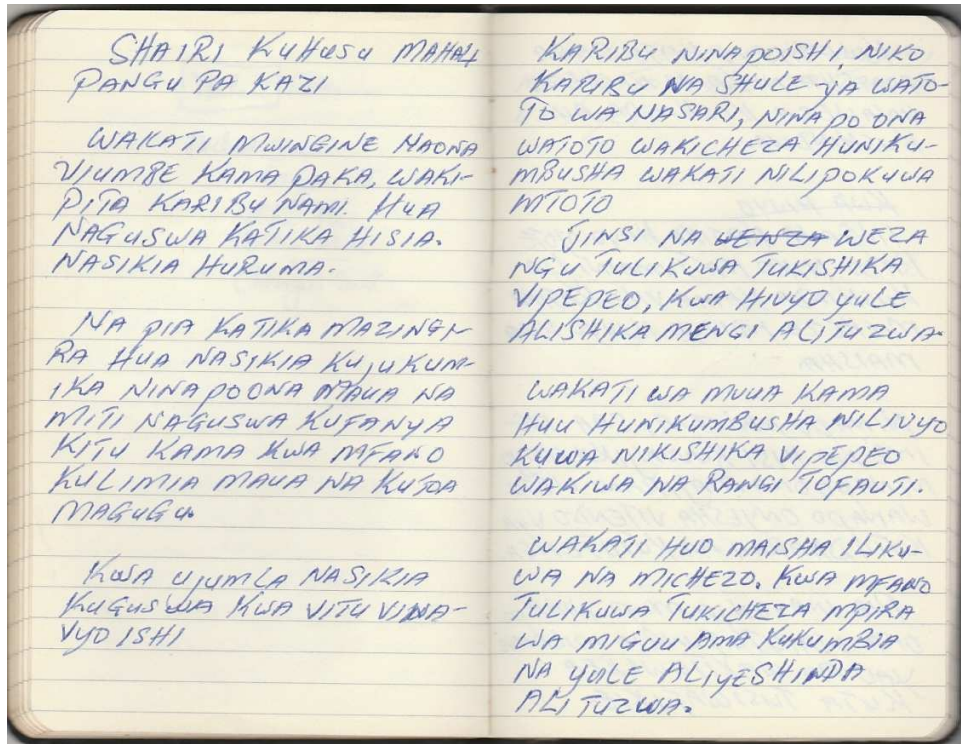 SHAIRI KUHUSU MAHALI
PANGU PA KAZI
WAKATI MWINGINE NAONA
VIUMBE KAMA PAKA, WAKI-
PITA KARIBU NAMI. HUA
NAGUSWA KATIKA HISIA.
NASIKIA HURUMA.
NA PIA KATIKA MAZINGI-
RA HUA NASIKIA KUJUKUM-
IKA NINAPOONA MAUA NA
MITI NAGUSWA KUFANYA
KITU KAMA KWA MFANO
KULIMIA MAUA NA KUTOA
MAGUGU.
KWA UJUMLA NASIKIA
KUGUSWA KWA VITU VINA-
VYO ISHI
KARIBU NINAPOISHI, NIKO
KARIBU NA SHULE YA WATO-
TO WA NASARI, NINAPO ONA
WATOTO WAKICHEZA HUNIKU-
MBUSHA WAKATI NILIPOKUWA
MTOTO
JINSI NA WENZA WEZA
NGU TULIKUWA TUKISHIKA
VIPEPEO, KWA HIVYO YULE
ALISHIKA MENGI ALITUZWA.
WAKATI WA MVUA KAMA
HUU HUNIKUMBUSHA NILIVYO
KUWA NIKISHIKA VIPEPEO
WAKIWA NA RANGI TOFAUTI.
WAKATI HUO MAISHA ILIKU-
WA NA MICHEZO. KWA MFANO
TULIKUWA TUKICHEZA MPIRA
WA MIGUU AMA KUKUMBIA
NA YULE ALIYESHINDA
ALITUZWA.